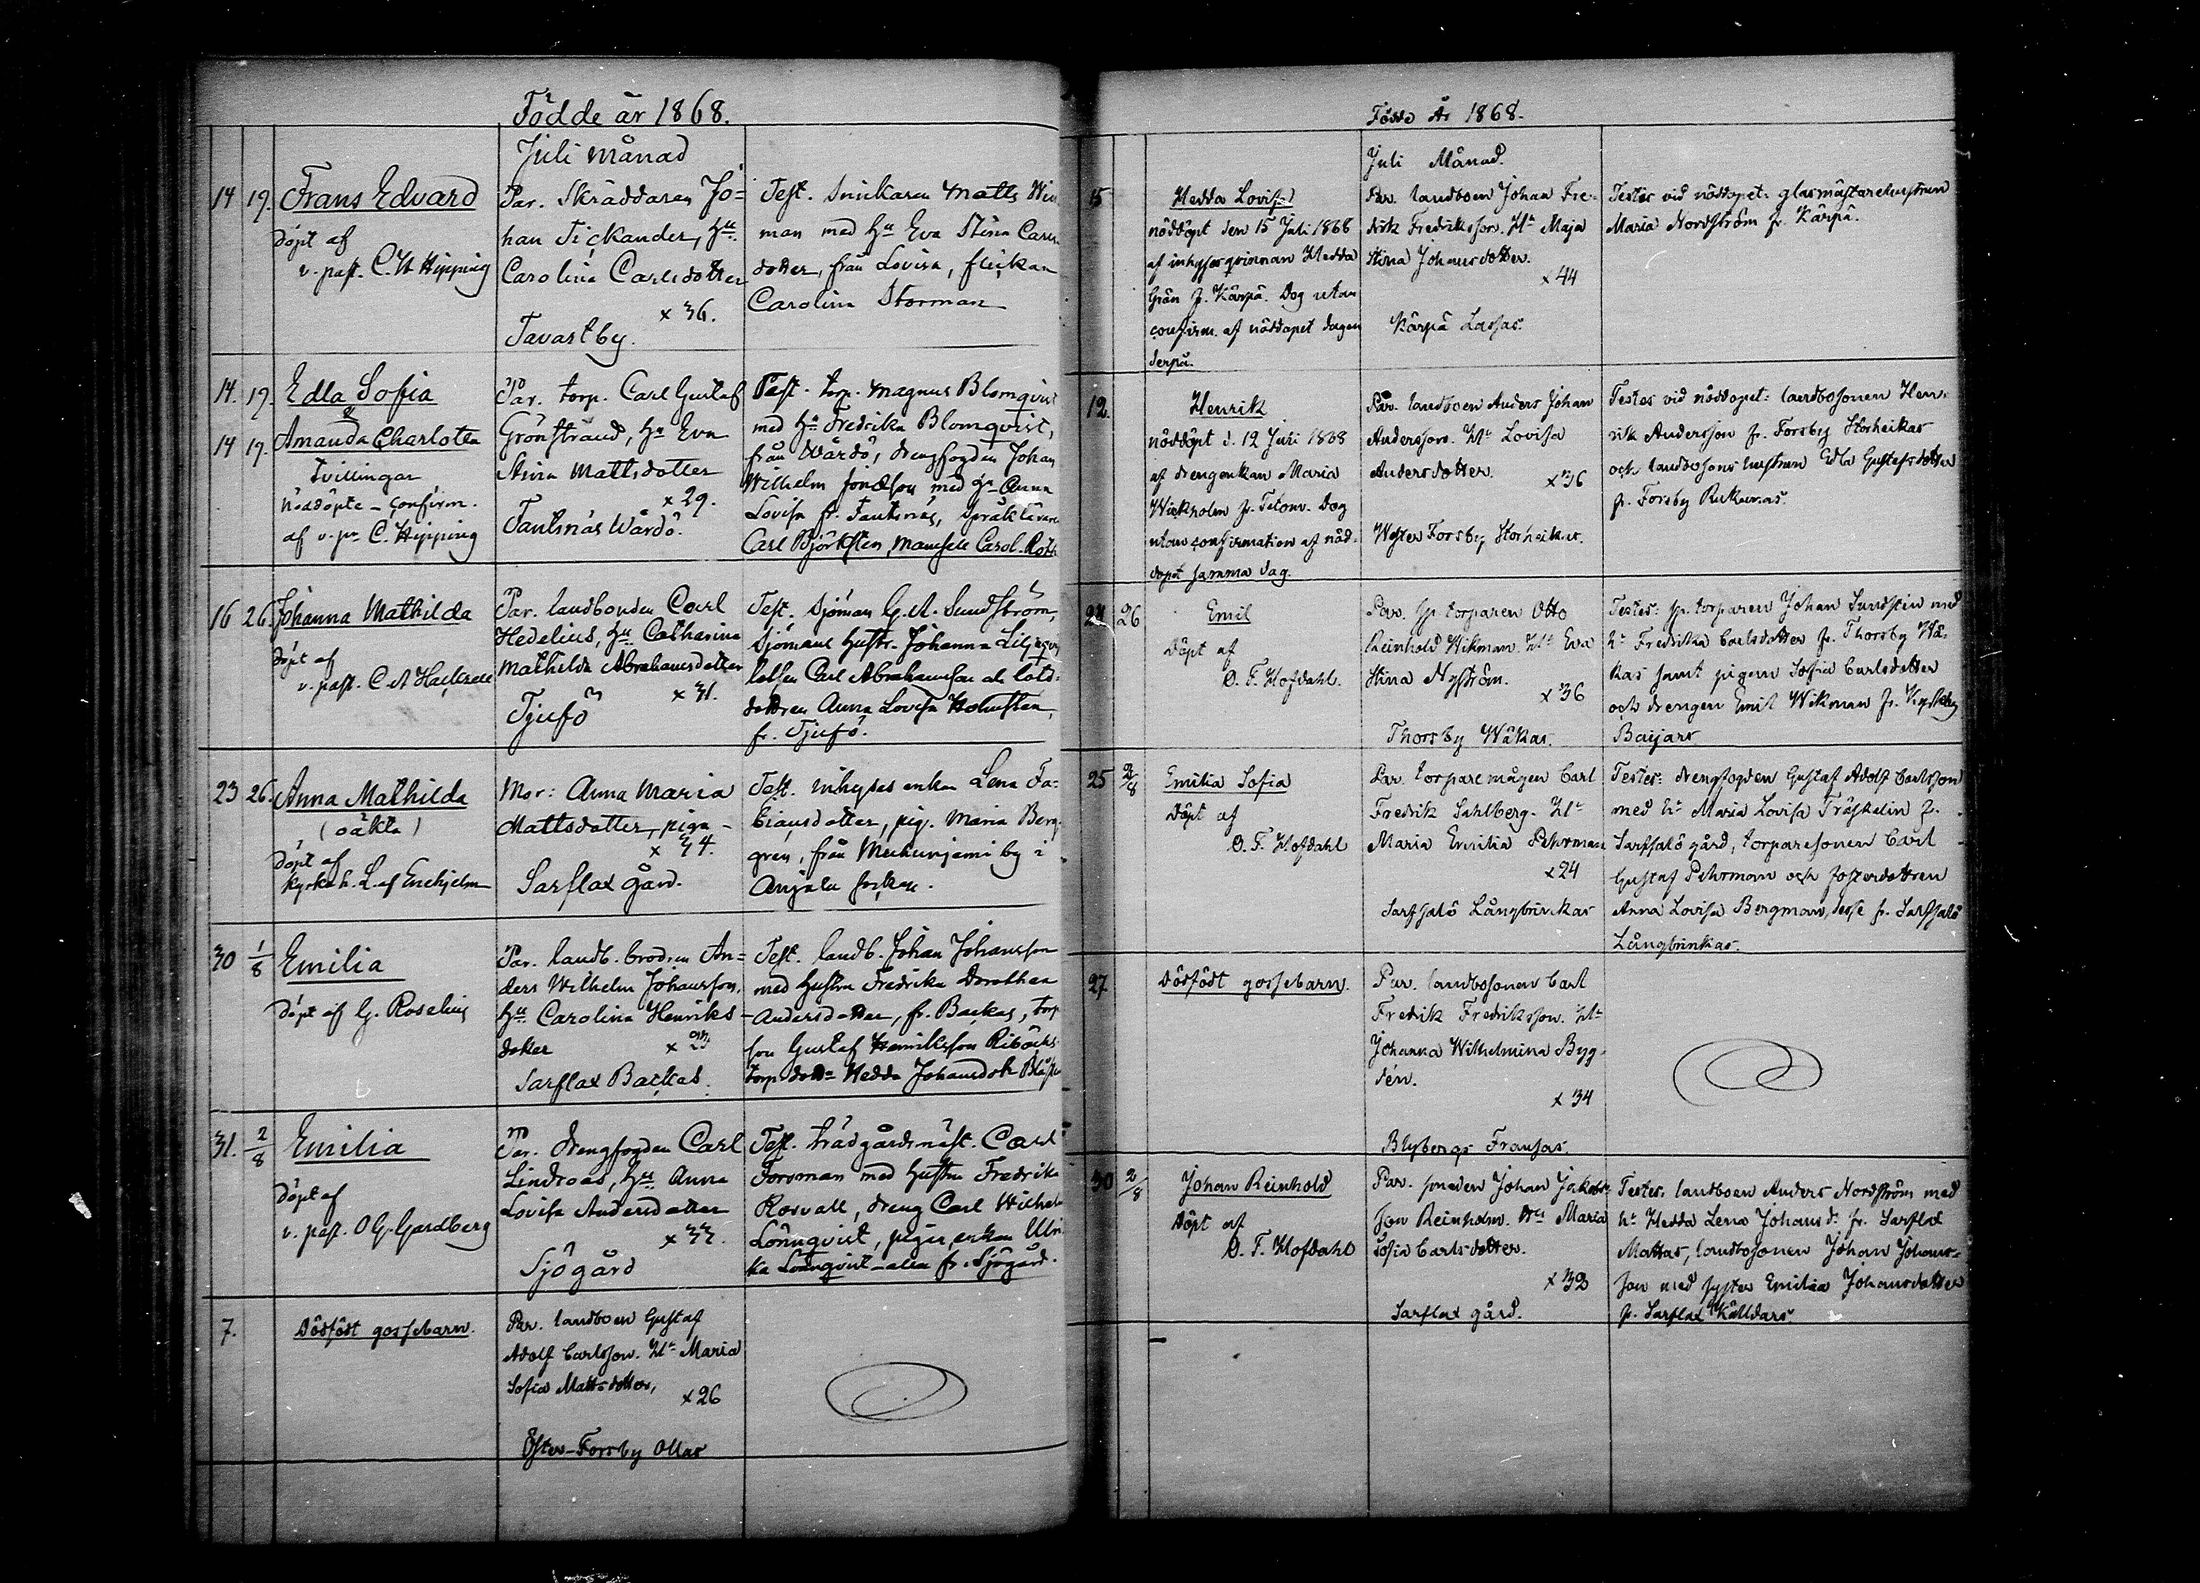 Födde år 1868.
Juli månad
14 19. Frans Edvard
döpt af
v. past. C. W. Hipping
Par. Skräddaren Jo=
han Tickander, Hu
Carolina Carlsdotter
x 36.
Tavastby.
Test. Snickaren Matts Wi
man med Hu Eva Stina Carls
dotter, från Lovisa, flickan
Carolina Storman
14. 19. Edla Sofia
&
14 19. Amanda Charlotta
Tvillingar
nöddöpte - confirm.
af v. p. C. Hipping
Par. torp. Carl Gustaf
Grönstrand, Hu Eva
Stina Mattsdotter
x 29.
Tantsnäs Wärdö.
Test. torp. Magnus Blomqvist
med Hu Fredrika Blomqvist,
från Wärdö, drengfogden Johan
Wilhelm med Hu Anna
Lovisa fr. Tantsnäs, språklärare
Carl Björksten, Mamsell Carol.
16 26. Johanna Mathilda
döpt af
v. past. C A
Par. landbonden Carl
Hedelius, Hu Catharina
Mathilda Abrahamsdotter
x 31.
Tjufö
Test. Sjöman G. A. Sundström,
Sjömans Hustr. Johanna
Carl Abrahamsson lots=
dottren Anna Lovisa
fr. Tjufö.
23 26. Anna Mathilda
(oäkta)
döpt af
kyrkoh. L. af Enehjelm
Mor: Anna Maria
Mattsdotter, piga -
x 34.
Sarflax gård.
Test. inhyses enkan Lena Fa=
biansdotter, pig. Maria Berg=
gren, från by i
Anjala socken.
30 1/8 Emilia
döpt af G. Roselius
Par. landb. brodren An=
ders Wilhelm Johansson,
Hu Carolina Henriks-
dotter x 23
Sarflax Backas.
Test. landb. Johan Johansson
med Hustru Fredrika Dorothea
Andersdotter, fr. Backas, torp
son Gustaf Henriksson Ribäcks
torp. dottr Hedda Johansdotr
31. 2/8 Emilia
döpt af
v. past. O G. Gardberg
Par. drengfogden Carl
Lindroos, Hu Anna
Lovisa Andersdotter
x 33.
Sjögård
Test. trädgårdsmäst. Carl
Forsman med Hustru Fredrika
Rosvall, dreng Carl Wilhelm
Lönnqvist, enkan Ulri
ka Lönnqvist - alla fr. Sjögård.
7. Dödfödt gossebarn.
Par. landboen Gustaf
Adolf Carlsson. Hu Maria
Sofia Mattsdotter,
x 26
Öster-Forsby Ollas
Födde År 1868.
Juli Månad.
15 Hedda Lovisa
nöddöpt den 15 Juli 1868
af inhysesqvinnan Hedda
Grön fr. Kärpä. Dog utan
confirm. af nöddopet dagen
derpå.
Par. landboen Johan Fre-
drik Fredriksson. Hu Maja
Stina Johansdotter.
x 44
Kärpä Lassas.
Testes vid nöddopet: glasmästarehustrun
Maria Nordström fr. Kärpä.
12. Henrik
nöddöpt d. 12 Juli 1868
af drengenkan Maria
Wickholm fr. Dog
utan confirmation af nöd-
dopet samma dag.
Par. landboen Anders Johan
Andersson. Hu Lovisa
Andersdotter.
x 36
Wester Forsby Storheikas.
Testes vid nöddopet: landbosonen Hen-
rik Andersson fr. Forsby Storheikas
och landbosons hustrun Edla Gustafsdotter
fr. Forsby
24 26 Emil
Döpt af
O. F. Hofdahl.
Par. torparen Otto
Reinhold Wikman. Hu Eva
Stina Nyström.
x 36
Thorsby Wäkas.
Testes: torparen Johan Sundsten med
hu Fredrika Carlsdotter fr. Thorsby Wä-
kas samt pigan Sofia Carlsdotter
och drengen Emil Wikman fr.
Baijars
25 2/8 Emilia Sofia
Döpt af
O. F. Hofdahl
Par. torparemågen Carl
Fredrik Sahlberg. Hu
Maria Emilia Pehrman
x 24
Sarfsalö Långbrinkas
Testes: drengfogden Gustaf Adolf Carlsson
med hu Maria Lovisa Träskelin fr.
Sarfsalö gård, torparesonen Carl
Gustaf Pehrman och fosterdottren
Anna Lovisa Bergman, desse fr. Sarfsalö
Långbrinkas.
27 Dödfödt gossebarn.
Par. landbosonen Carl
Fredrik Fredriksson. Hu
Johanna Wilhelmina Byg-
dén.
x 34
Blybergs Fransas.
30 2/8 Johan Reinhold
Döpt af
O. F. Hofdahl
Par. smeden Johan Jakobs-
son Reinholm. Hu Maria
Sofia Carlsdotter.
x 32
Sarflax gård.
Testes: landboen Anders Nordström med
hu Hedda Lena Johansdr fr. Sarflax
Mattas, landbosonen Johan Johans-
son med syster Emilia Johansdotter
fr. Sarflax Källdars.